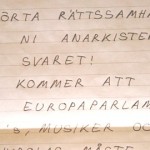 ÖRTA RÄTTSSAMHA
NI ANARKISTER
SVARET!
KOMMER ATT
EUROPAPARLAM
'S, MUSIKER OC